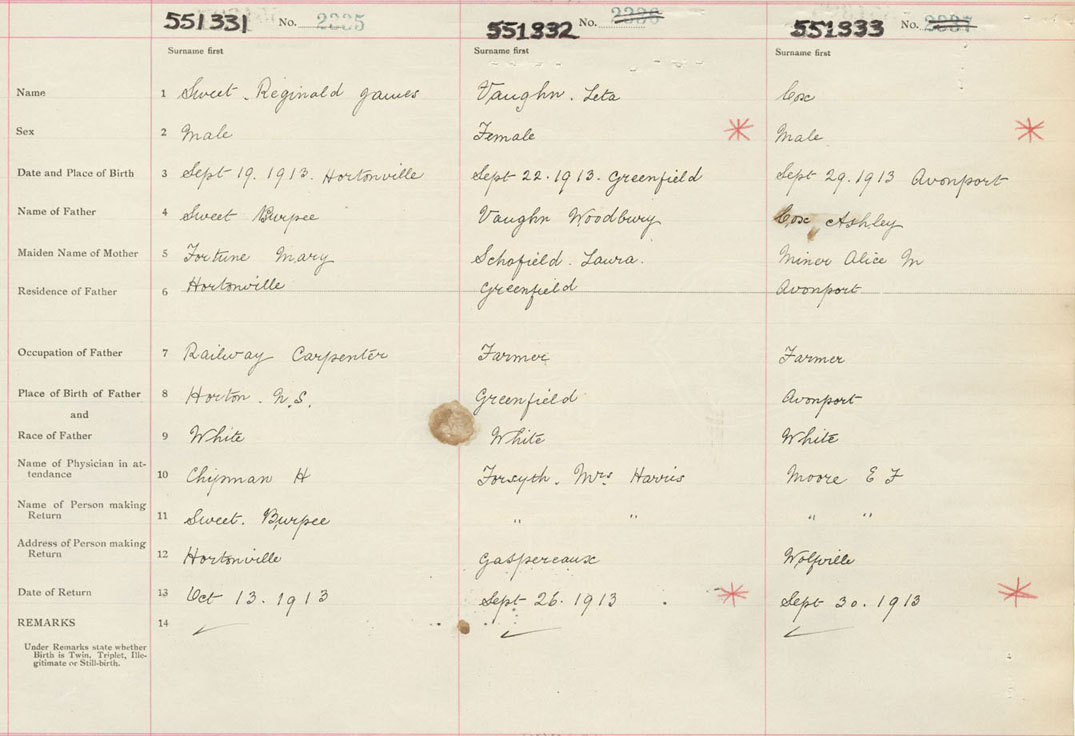 551331 No. 2335 551332 No. 2336 551333 No. 2337
Surname first Surname first Surname first
Name 1 Sweet. Reginald James Vaughn. Leta Cox
Sex 2 Male Female Male
Date and Place of Birth 3 Sept 19. 1913. Hortonville Sept 22. 1913. Greenfield Sept 29. 1913 Avonport
Name of Father 4 Sweet Burpee Vaughn Woodbury Cox Ashley
Maiden Name of Mother 5 Fortune Mary Schofield. Laura. Miner Alice M
Residence of Father 6 Hortonville Greenfield Avonport
Occupation of Father 7 Railway Carpenter Farmer Farmer
Place of Birth of Father 8 Horton. N.S. Greenfield Avonport
and
Race of Father 9 White White White
Name of Physician in at-
tendance 10 Chipman H Forsyth. Mrs Harris Moore E F
Name of Person making
Return 11 Sweet. Burpee " " " "
Address of Person making
Return 12 Hortonville Gaspereaux Wolfville
Date of Return 13 Oct 13. 1913 Sept 26. 1913 Sept 30. 1913
REMARKS 14
Under Remarks state whether
Birth is Twin, Triplet, Ille-
gitimate or Still-birth.